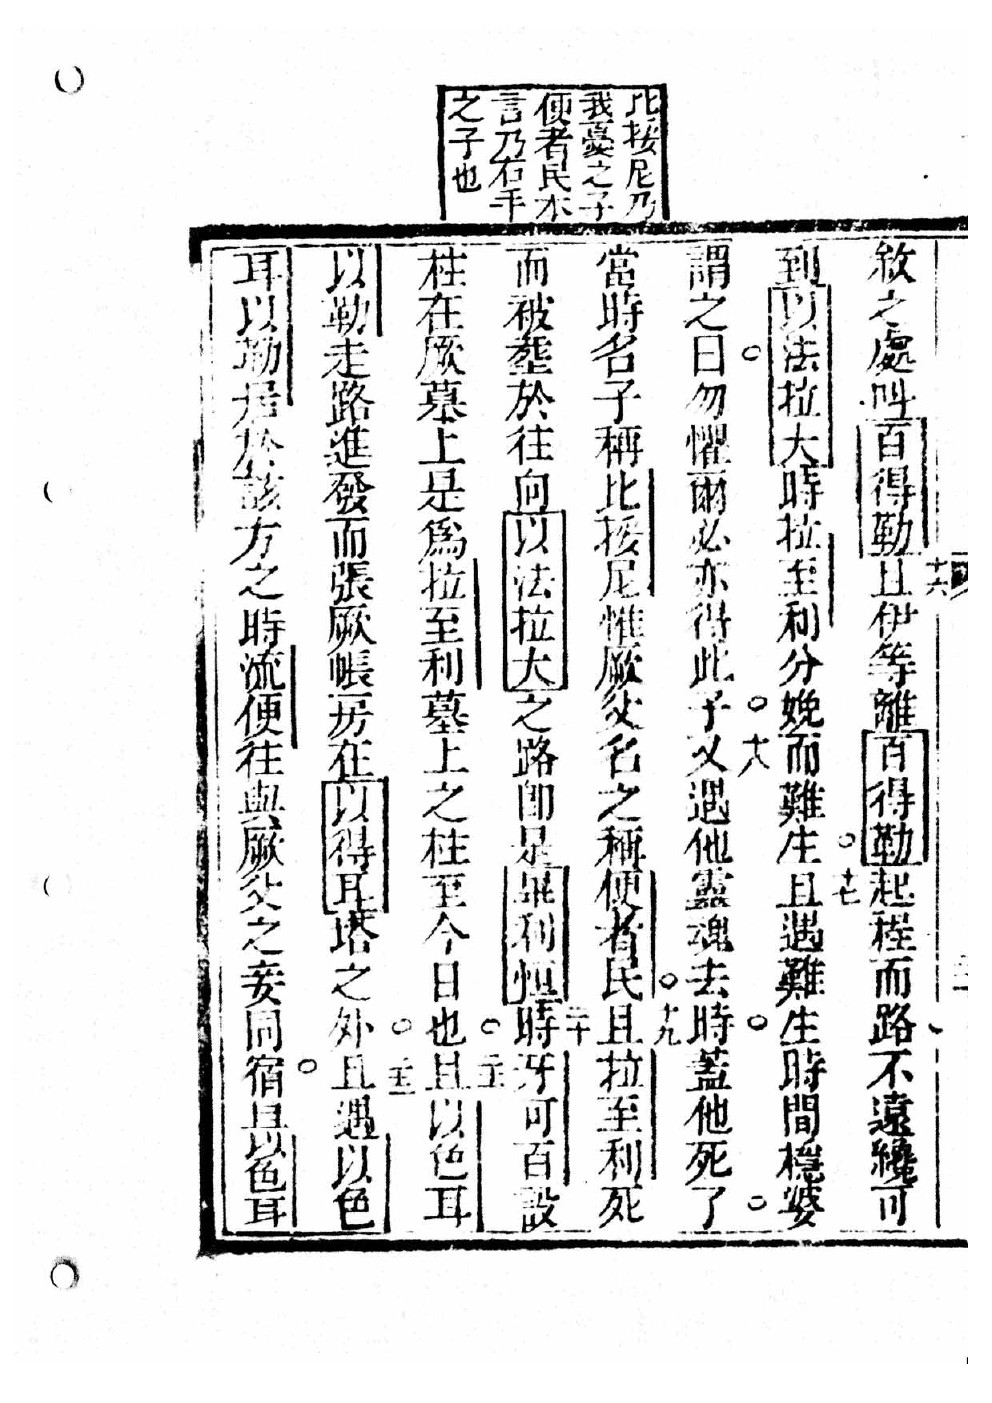 比接尼乃
我憂之子
便者民本
言乃右手
之子也
敘之處叫百得勒十六且伊等離百得勒起程而路不遠纔可
到以法拉大時拉至利分娩而難生○十七且遇難生時間穩婆
謂之曰○勿懼爾必亦得此子○十八又遇他靈魂去時○蓋他死了○
當時名子稱比接尼惟厥父名之稱便者民○十九且拉至利死
而被塟於往向以法拉大之路卽是畢利恒○二十時牙可百設
柱在厥墓上是爲拉至利墓上之柱至今日也○二十一且以色耳
以勒走路進發而張厥帳房在以得耳塔之外○二十二且遇以色
耳以勒居於該方之時流便往與厥父之妾同宿○且以色耳